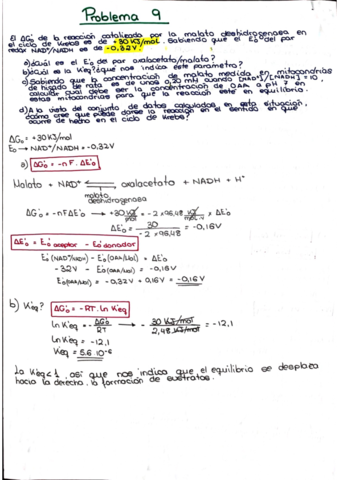 Problema 9
El ΔG'o de la reacción catalizada por la malato deshidrogenasa en
el ciclo de Krebs es de +30 KJ/mol. Sabiendo que el E'o del par
redox NAD+/NADH es de -0,32V.
a) ¿Cuál es el E'o del par oxalacetato/malato?
b) ¿Cuál es la K'eq? ¿qué nos indica este parámetro?
c) Sabiendo que la concentración de malato medida en mitocondrias
de hígado de rata es de unos 0,20 mM cuando [NAD+]/[NADH] = 10,
calcular qué debe ser la concentración de OAA a pH 7 en
estas mitocondrias para que la reacción esté en equilibrio.
d) A la vista del conjunto de datos calculados en esta situación,
¿cómo cree que puede darse la reacción en el sentido en que
ocurre de hecho en el ciclo de Krebs?
ΔG'o = +30 KJ/mol
E'o → NAD+/NADH = -0,32V
a) ΔG'o = -n F. ΔE'o
Malato + NAD+ ⇌ oxalacetato + NADH + H+
malato
deshidrogenasa
ΔG'o = -nFΔE'o → +30 KJ/mol = -2 × 96,48 KJ/mol·V × ΔE'o
ΔE'o = 30 / -2 × 96,48 = -0,16V
ΔE'o = E'o aceptor - E'o donador
E'o (NAD+/NADH) - E'o (OAA/Mol) = ΔE'o
-32V - E'o (OAA/Mol) = -0,16V
E'o (OAA/Mol) = -0,32V + 0,16V = -0,16V
b) K'eq? ΔG'o = -RT. Ln K'eq
Ln K'eq = - ΔG'o / RT → - 30 KJ/mol / 2,48 KJ/mol = -12,1
Ln K'eq = -12,1
K'eq = 5.6·10-6
La K'eq < 1, así que nos indica que el equilibrio se desplaza
hacia la derecha, la formación de sustratos.